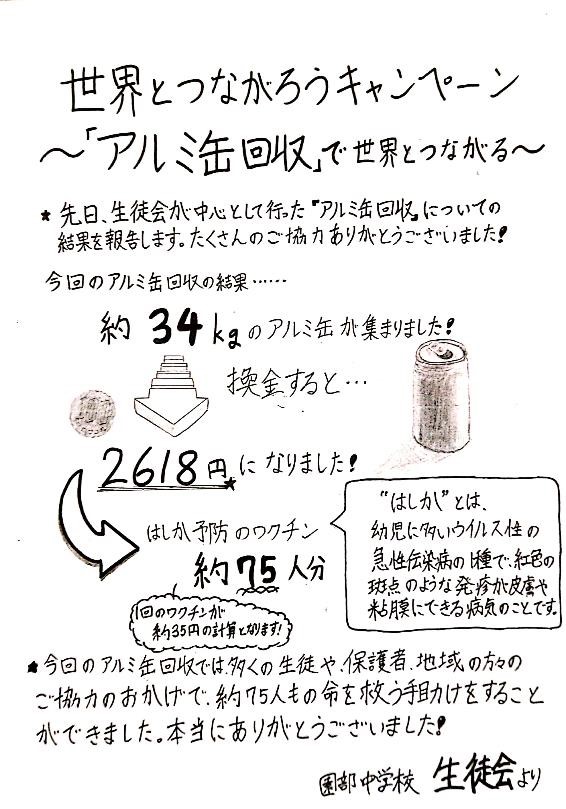 世界とつながろうキャンペーン
～「アルミ缶回収」で世界とつながる～
* 先日、生徒会が中心として行った『アルミ缶回収』についての
結果を報告します。たくさんのご協力ありがとうございました!
今回のアルミ缶回収の結果……
約 34kgのアルミ缶が集まりました!
換金すると…
2618円になりました!
はしか予防のワクチン
約75人分
1回のワクチンが
約35円の計算となります!
"はしか"とは、
幼児に多いウイルス性の
急性伝染病の1種で、紅色の
斑点のような発疹が皮膚や
粘膜にできる病気のことです。
* 今回のアルミ缶回収では、多くの生徒や、保護者、地域の方々の
ご協力のおかげで、約75人もの命を救う手助けをすること
ができました。本当にありがとうございました!
園部中学校 生徒会より